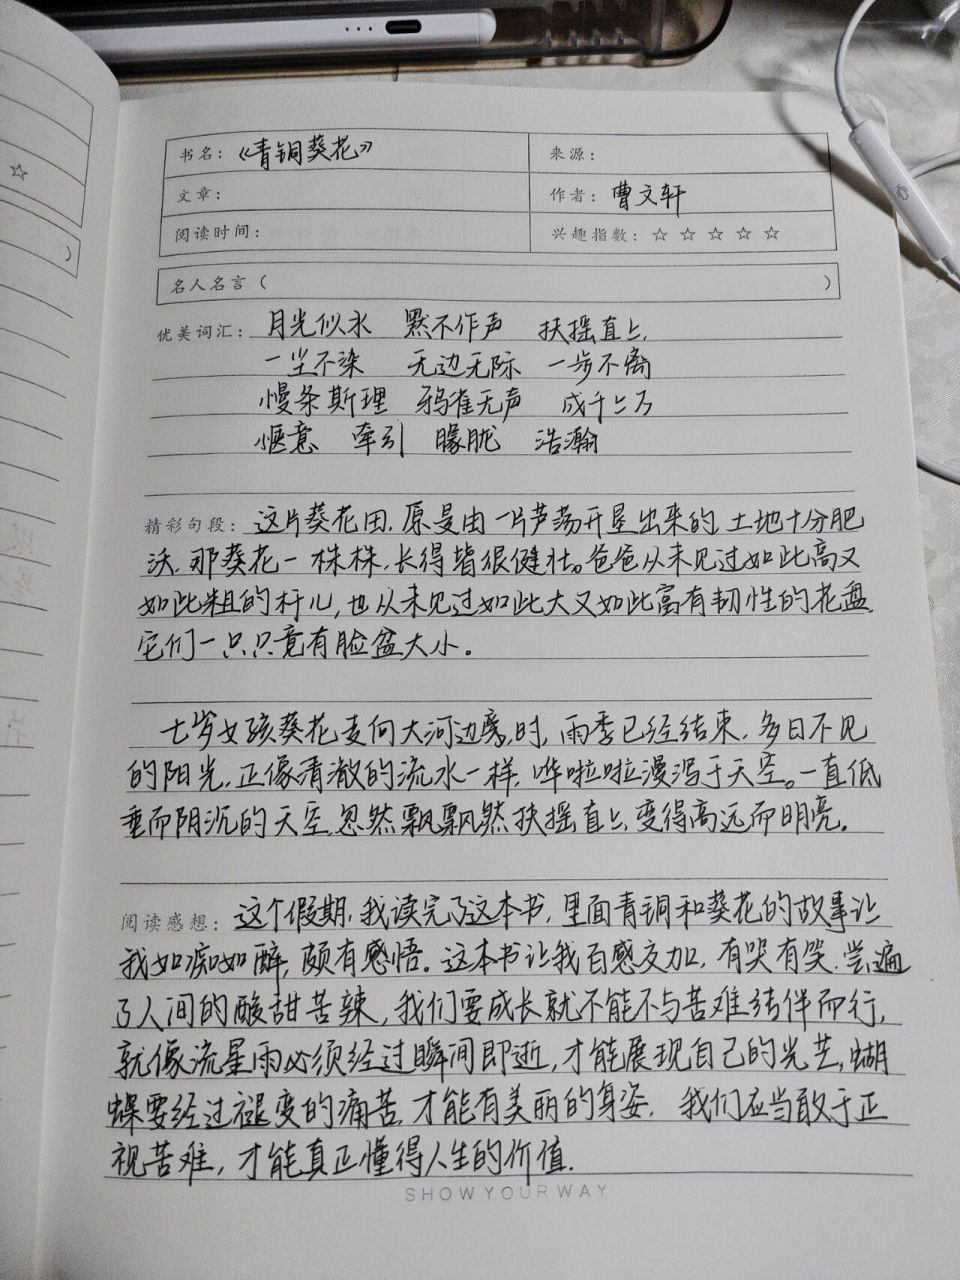 书名：《青铜葵花》 来源：
文章： 作者：曹文轩
阅读时间： 兴趣指数：☆ ☆ ☆ ☆ ☆
名人名言（ ）
优美词汇： 月光似水 默不作声 扶摇直上
一尘不染 无边无际 一步不离
慢条斯理 鸦雀无声 成千上万
惬意 牵引 朦胧 浩瀚
精彩句段：这片葵花田，原是由一片芦荡开垦出来的，土地十分肥
沃，那葵花一株株，长得皆很健壮。爸爸从未见过如此高又
如此粗的杆儿，也从未见过如此大又如此富有韧性的花盘
它们一只只竟有脸盆大小。
七岁女孩葵花走向大河边旁，时，雨季已经结束，多日不见
的阳光，正像清澈的流水一样，哗啦啦漫泻于天空。一直低
垂而阴沉的天空，忽然飘飘然扶摇直上，变得高远而明亮。
阅读感想：这个假期，我读完了这本书，里面青铜和葵花的故事让
我如痴如醉，颇有感悟。这本书让我百感交加，有哭有笑，尝遍
了人间的酸甜苦辣，我们要成长就不能不与苦难结伴而行，
就像流星雨必须经过瞬间即逝，才能展现自己的光芒，蝴
蝶要经过褪变的痛苦，才能有美丽的身姿，我们应当敢于正
视苦难，才能真正懂得人生的价值.
SHOW YOUR WAY